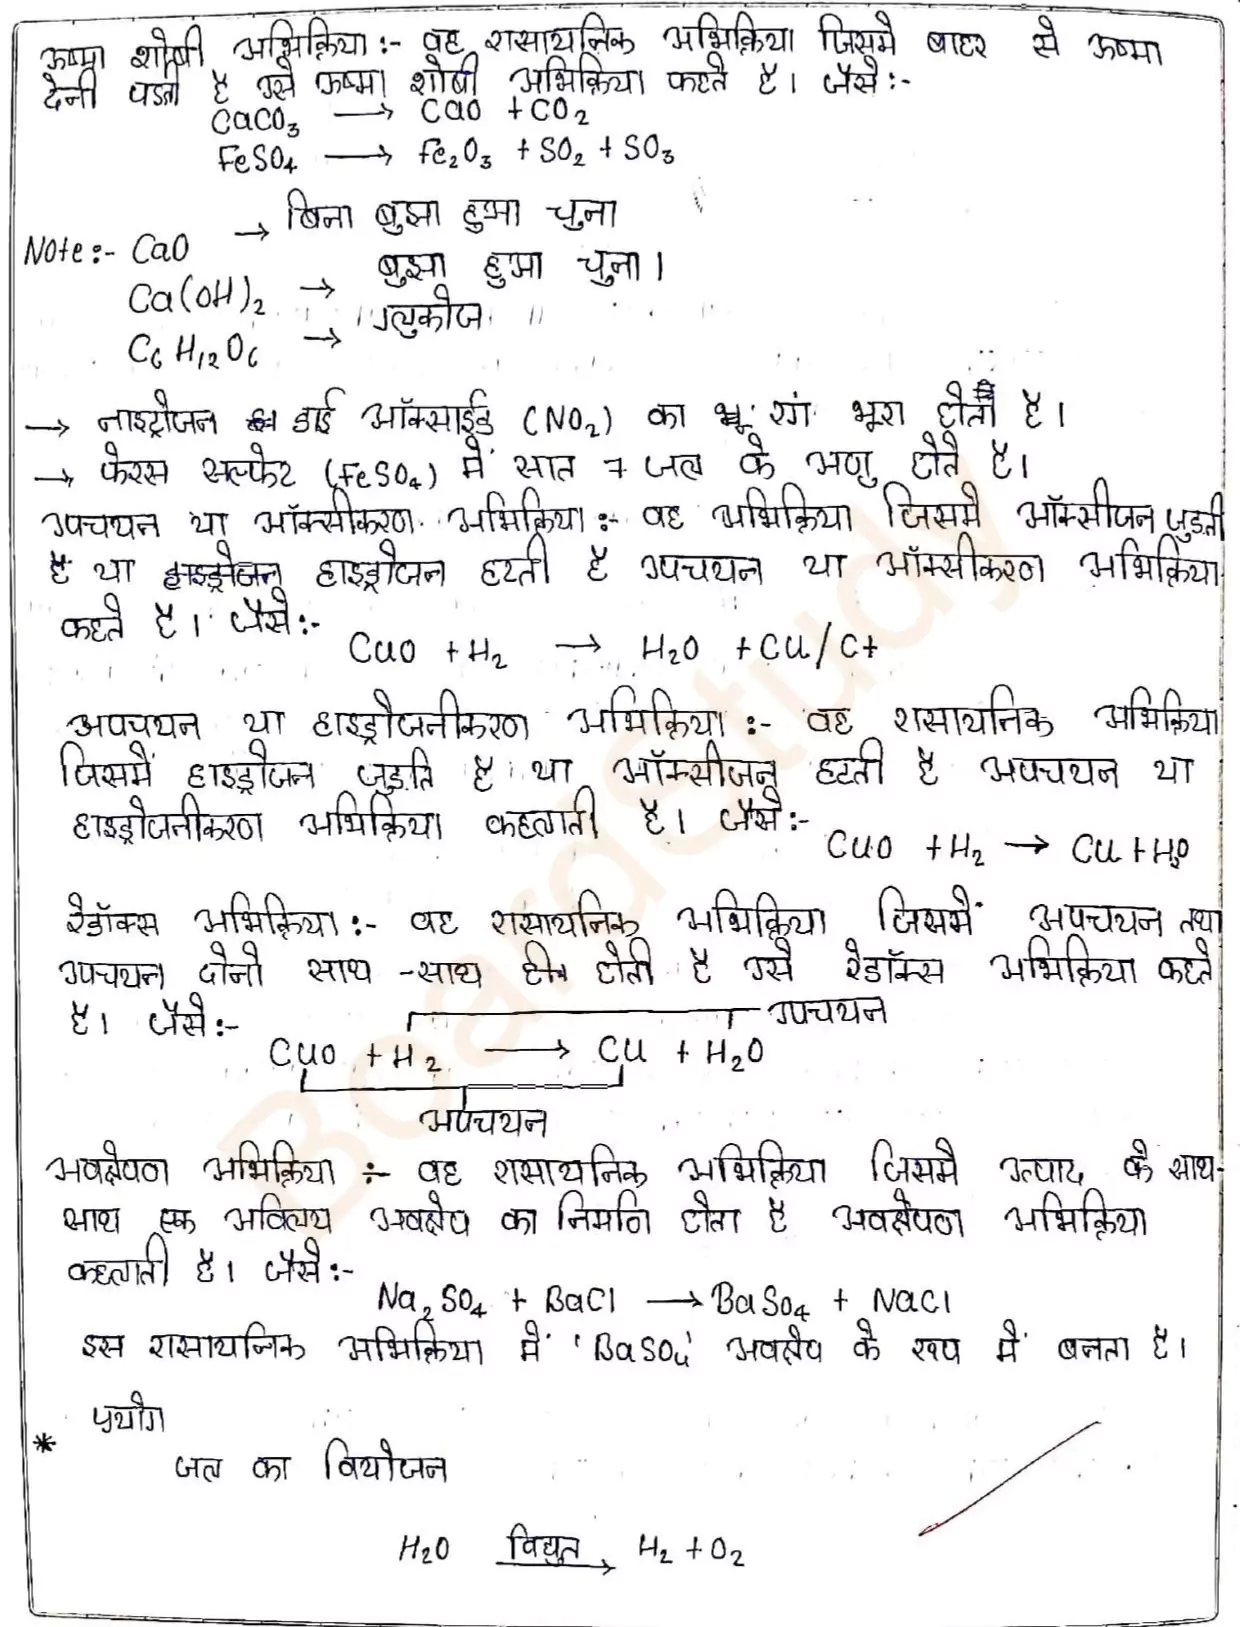 ऊष्मा शोषी अभिक्रिया :- वह रासायनिक अभिक्रिया जिसमे बाहर से ऊष्मा
देनी पडती है उसे ऊष्मा शोषी अभिक्रिया कहते है। जैसे :-
CaCO₃ ⟶ CaO + CO₂
FeSO₄ ⟶ Fe₂O₃ + SO₂ + SO₃
Note :- CaO → बिना बुझा हुआ चुना
Ca(OH)₂ → बुझा हुआ चुना।
C₆H₁₂O₆ → ग्लुकोज
→ नाइट्रोजन डाई ऑक्साईड (NO₂) का रंग भूरा होता है।
→ फेरस सल्फेट (FeSO₄) में सात 7 जल के अणु होते है।
उपचयन या ऑक्सीकरण अभिक्रिया :- वह अभिक्रिया जिसमे ऑक्सीजन जुडती
है या हाइड्रोजन हटती है उपचयन या ऑक्सीकरण अभिक्रिया
कहते है। जैसे :-
CuO + H₂ → H₂O + Cu/C+
अपचयन या हाइड्रोजनीकरण अभिक्रिया :- वह रासायनिक अभिक्रिया
जिसमें हाइड्रोजन जुड़ति है या ऑक्सीजन हटती है अपचयन या
हाइड्रोजनीकरण अभिक्रिया कहलाती है। जैसे :-
CuO + H₂ → Cu + H₂O
रेडॉक्स अभिक्रिया :- वह रासायनिक अभिक्रिया जिसमें अपचयन तथा
उपचयन दोनो साथ - साथ होती है उसे रेडॉक्स अभिक्रिया कहते
है। जैसे :-
उपचयन
CuO + H₂ ⟶ Cu + H₂O
अपचयन
अवक्षेपण अभिक्रिया :- वह रासायनिक अभिक्रिया जिसमे उत्पाद के साथ-
साथ एक अविलय अवक्षेप का निर्माण होता है अवक्षेपण अभिक्रिया
कहलाती है। जैसे :-
Na₂SO₄ + BaCl ⟶ BaSO₄ + NaCl
इस रासायनिक अभिक्रिया में 'BaSO₄' अवक्षेप के रूप में बनता है।
प्रयोग
*
जल का वियोजन
H₂O विद्युत → H₂ + O₂
BoardStudy